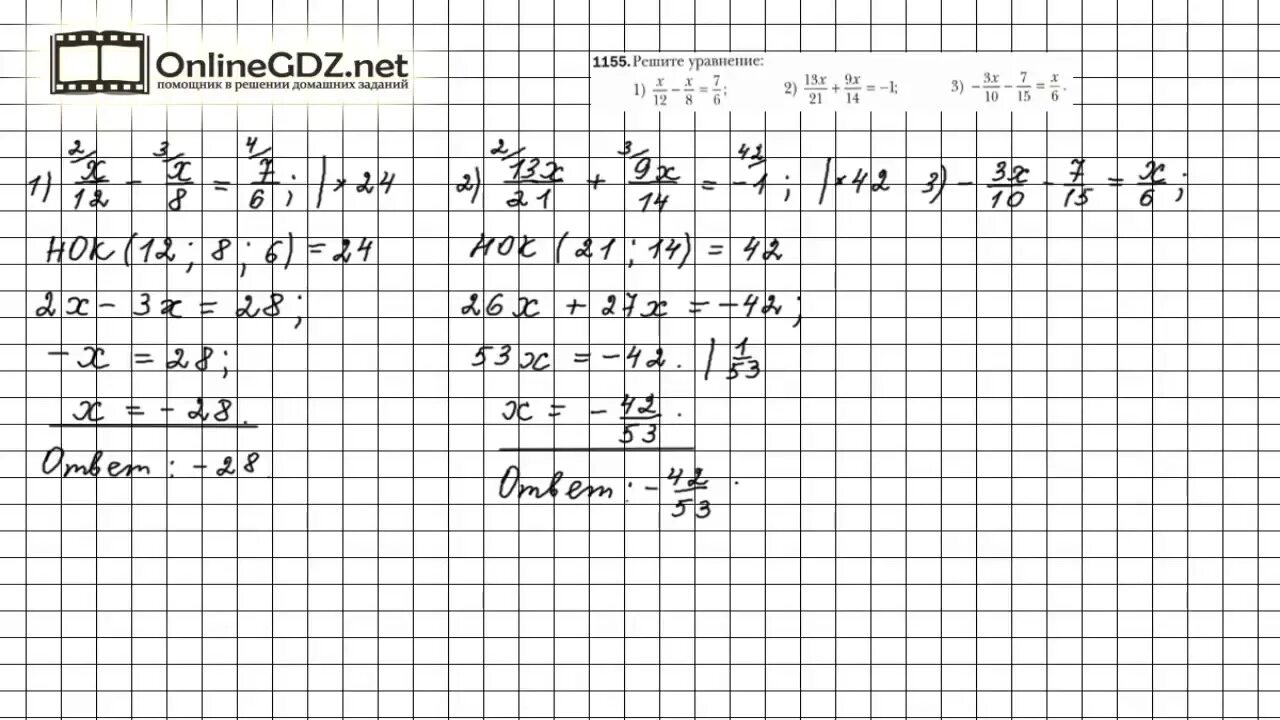 OnlineGDZ.net
помощник в решении домашних заданий
1155. Решите уравнение:
1) x/12 − x/8 = 7/6; 2) 13x/21 + 9x/14 = −1; 3) −3x/10 − 7/15 = x/6.
1) 2/ x/12 − 3/ x/8 = 4/ 7/6; | × 24
НОК (12; 8; 6) = 24
2x − 3x = 28;
−x = 28;
x = −28.
Ответ: −28.
2) 2/ 13x/21 + 3/ 9x/14 = 42/ −1; | × 42
НОК (21; 14) = 42
26x + 27x = −42;
53x = −42. | 1/53
x = −42/53.
Ответ: −42/53.
3) −3x/10 − 7/15 = x/6;